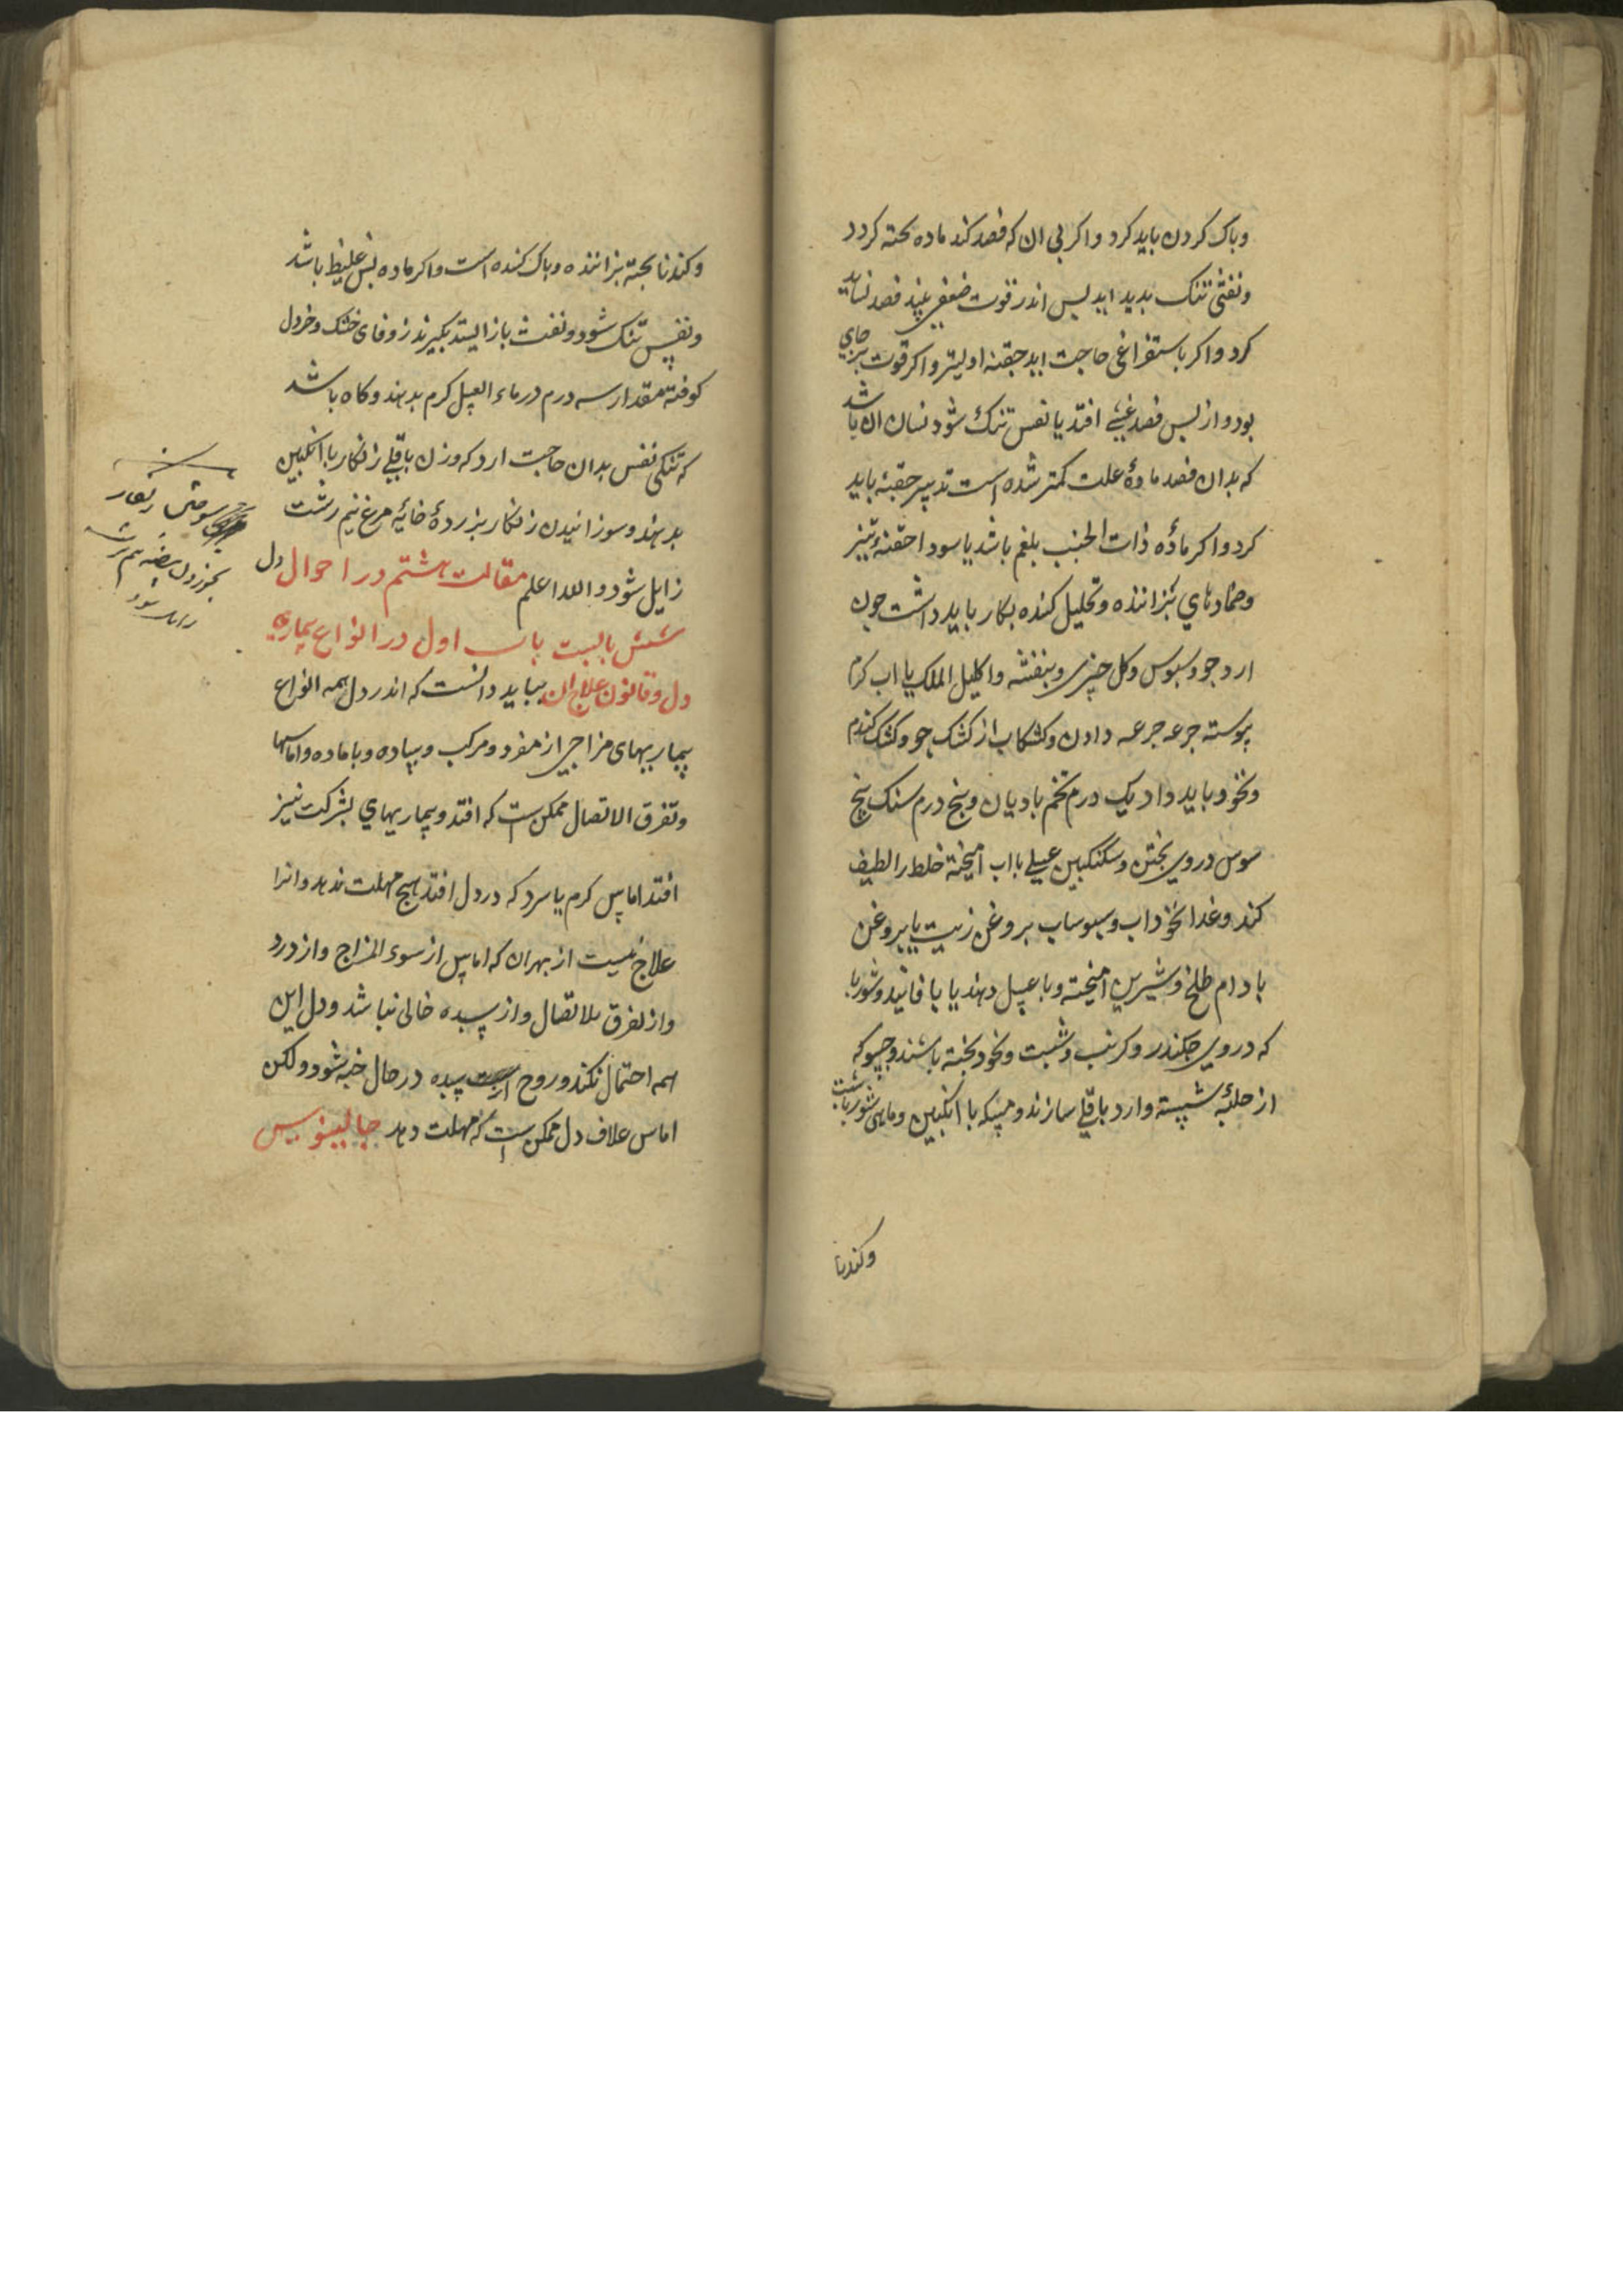 وباک کردن باید کرد واکر بی ان که فصد کند ماده بخته کردد
ونفثی تنک بدید اید بس اندر قوت ضعفی بیند فصد نشاید
کرد واکر باستفراغی حاجت اید حقنه اولیتر واکر قوت برجای
بود واز بس فصد غشی افتد یا نفس تنک شود نسان ان باشد
که بدان فصد مادهٔ علت کمتر شده است تدبیر حقنه باید
کرد واکر مادهٔ ذات الجنب بلغم باشد یا سودا حقنهٔ تیز
وضمادهای بزاننده وتحلیل کننده بکار باید داشت جون
ارد جو وسبوس وکل خیری وبنفشه واکلیل الملک یا اب کرم
بوسته جرعه جرعه دادن وکشکاب از کشک جو وکشک کندم
ونخود باید داد یک درم تخم بادیان وبنج درم سنک بیخ
سوس دروی بختن وسکنکبین عسلی با اب امیخته خلط را لطیف
کند وغدا نخوداب وسبوساب بروغن زیت یا بروغن
بادام طلخ وشیرین امیخته وبا عسل دهند یا با فانید وشوربا
که دروی جکندر وکرنب وشبت ونخود بخته باشند وحسو که
از حلبهٔ شسته وارد باقلی سازند ومسکه با انکبین وماهی شور باشبت
وکندنا
وکندنا بخته بزاننده وباک کننده است واکر ماده بس غلیظ باشد
ونفس تنک شود ونفث باز ایستد بکیرند زوفای خشک وخردل
کوفته مقدار سه درم در ماء العسل کرم بدهند وکاه باشد
که تنکی نفس بدان حاجت ارد که وزن باقلی زنکار با انکبین
بدهند وسوزانیدن زنکار بزردهٔ خایهٔ مرغ نیم رشت
زایل شود والله اعلم مقالت هشتم در احوال دل
شش بابست باب اول در انواع بیماری
دل وقانون علاج ان بباید دانست که اندر دل همه انواع
بیماریهای مزاجی از مفرد ومرکب وبیاده وباماده واماسها
وتفرق الاتصال ممکن است که افتد وبیماریهای بشرکت نیز
افتد اماس کرم یا سرد که در دل افتد هیج مهلت ندهد وانرا
علاج نیست از بهران که اماس از سوء المزاج واز درد
واز تفرق الاتصال واز سده خالی نباشد ودل این
همه احتمال نکند وروح از سده در حال خبه شود ولکن
اماس علاف دل ممکن است که مهلت دهد جالینوس
سوختن زنکار
بخوردن بیضه نیم رشت
زایل شود